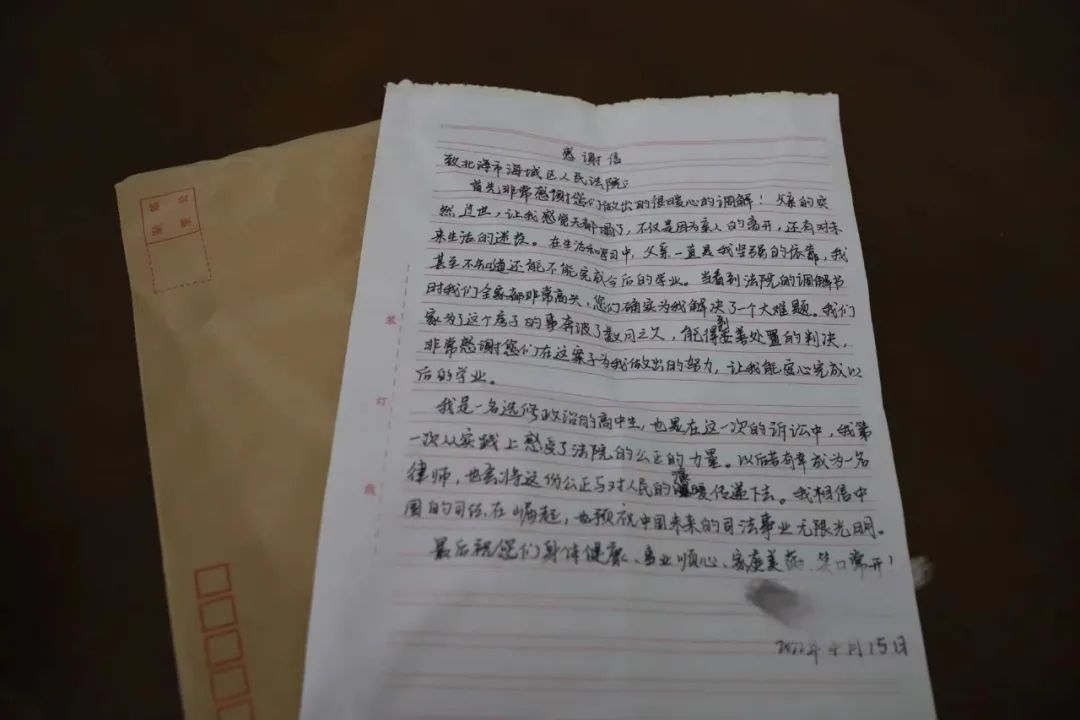 感谢信
致北海市海城区人民法院:
首先非常感谢您们做出的很暖心的调解！父亲的突
然过世，让我感觉天都塌了，不仅是因为亲人的离开，还有对未
来生活的迷茫。在生活和学习中，父亲一直是我坚强的依靠，我
甚至不知道还能不能完成今后的学业。当看到法院的调解书
时我们全家都非常高兴，您们确实为我解决了一个大难题。我们
家为了这个房子的事奔波了数月之久，能得到妥善处置的判决，
非常感谢您们在这案子为我做出的努力，让我能安心完成以
后的学业。
我是一名选修政治的高中生，也是在这一次的诉讼中，我第
一次从实践上感受了法院的公正的力量。以后若有幸成为一名
律师，也会将这份公正与对人民的温暖传递下去。我相信中
国的司法在崛起，也预祝中国未来的司法事业无限光明。
最后祝您们身体健康、事业顺心、家庭美满、笑口常开！
2022年4月15日
装
订
线